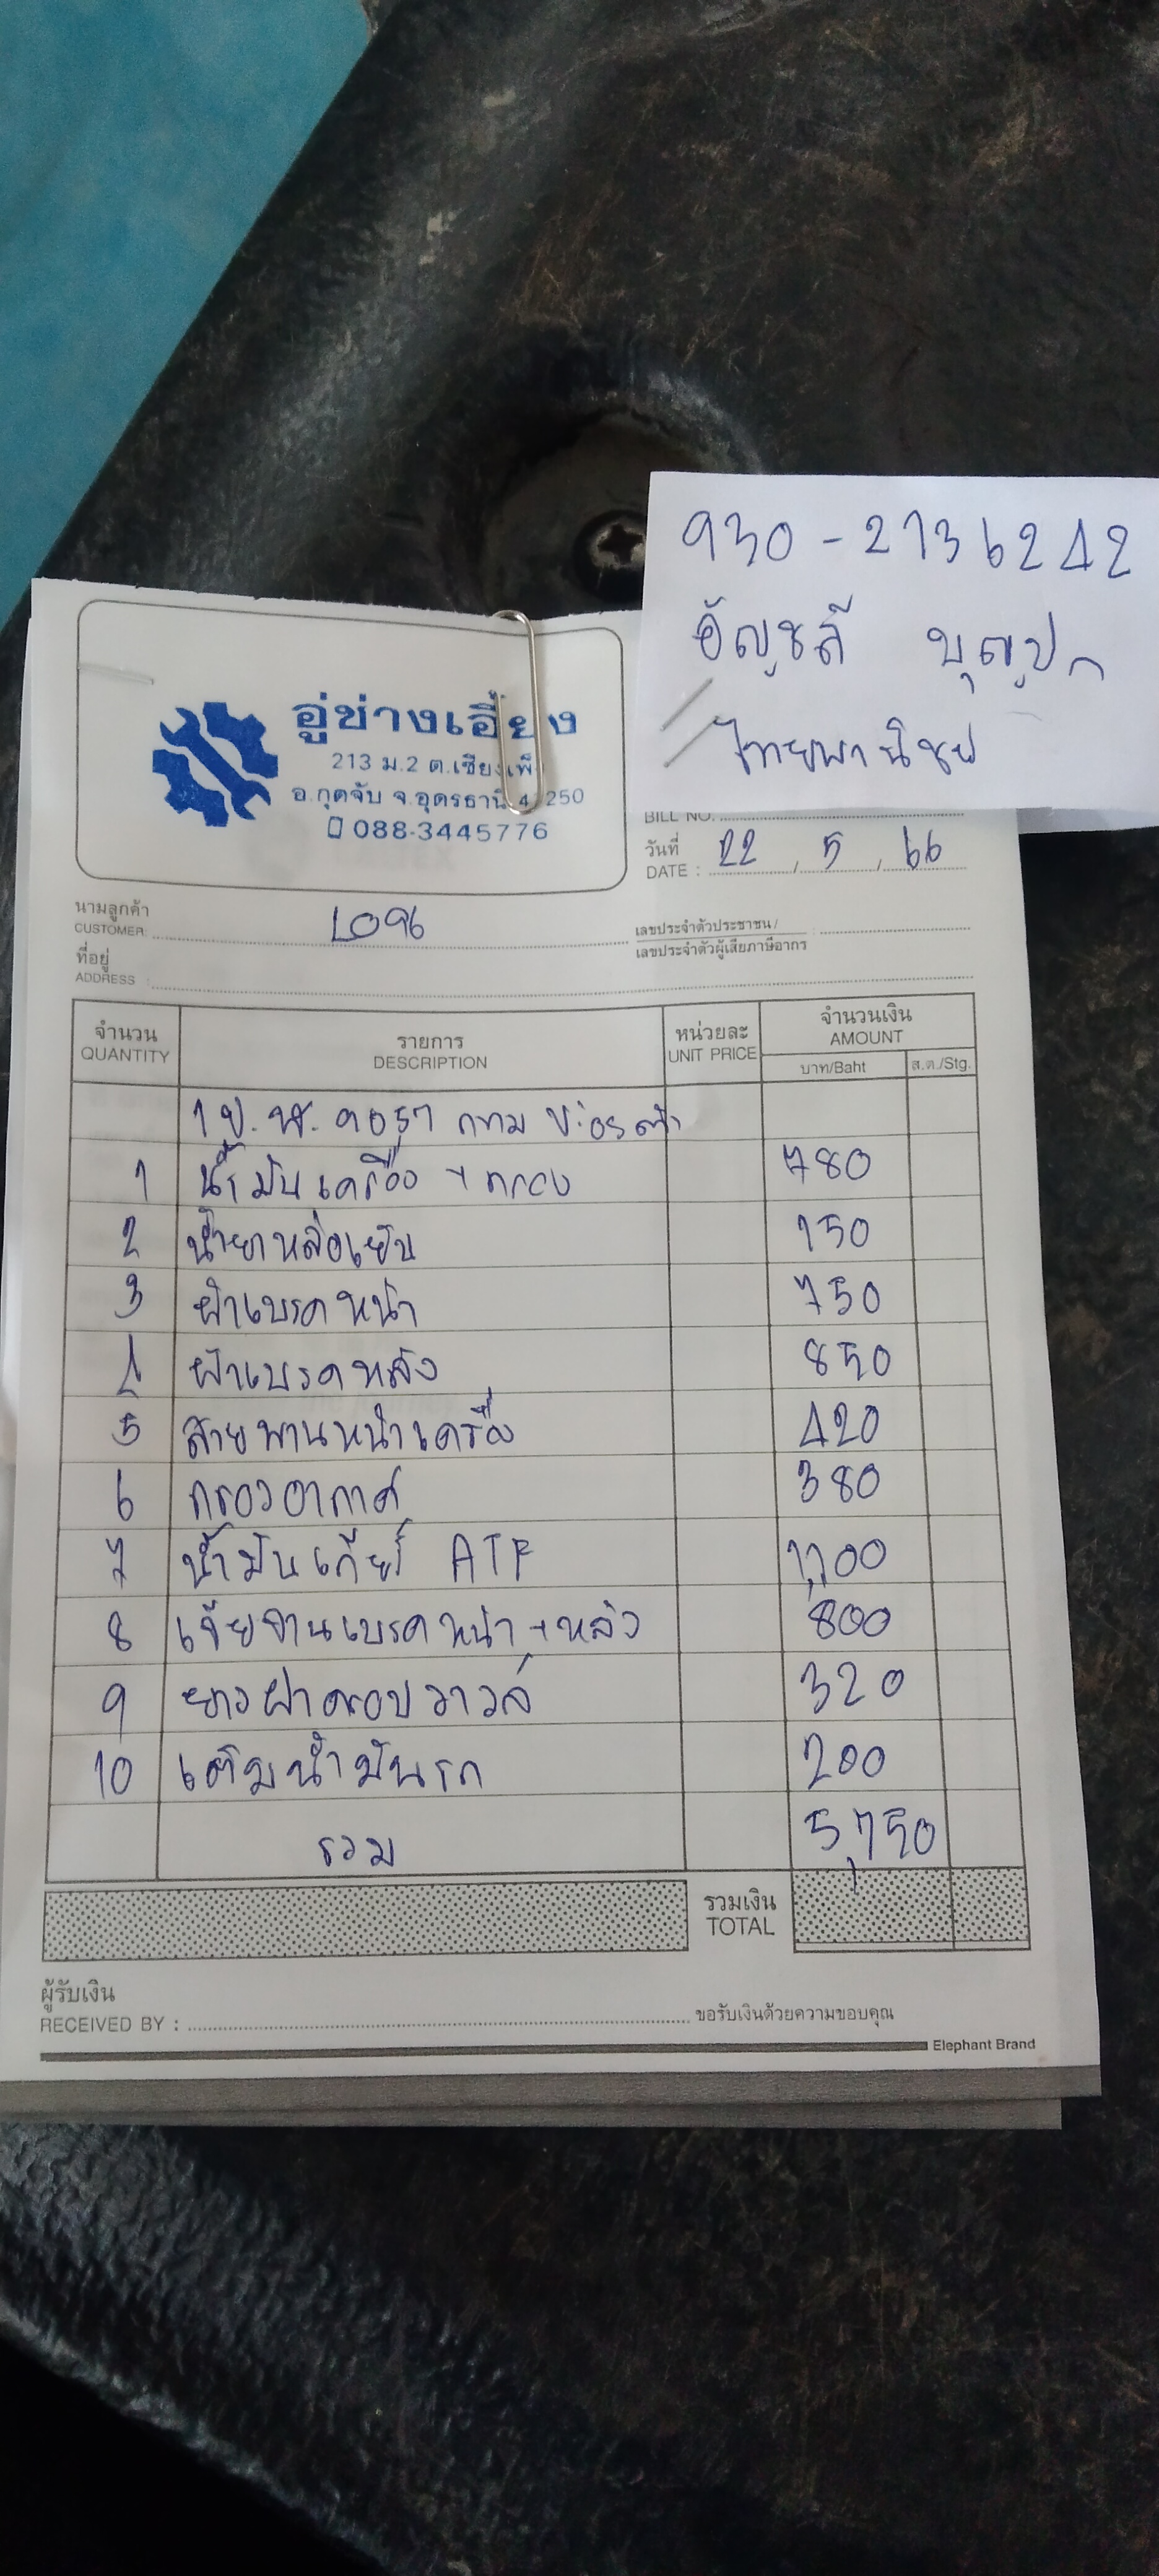 930-2136242
อัญชลี บุญปก
ไทยพานิชย์
อู่ช่างเอี้ยง
213 ม.2 ต.เชียงเพ็
อ.กุดจับ จ.อุดรธานี 4 250
088-3445776
BILL NO.
วันที่
DATE : 22 / 5 / 66
นามลูกค้า
CUSTOMER: LO96
เลขประจำตัวประชาชน /
เลขประจำตัวผู้เสียภาษีอากร
ที่อยู่
ADDRESS :
จำนวน
QUANTITY
รายการ
DESCRIPTION
หน่วยละ
UNIT PRICE
จำนวนเงิน
AMOUNT
บาท/Baht ส.ต./Stg.
กทม
1 น้ำมันเครื่อง + กรอง 780
2 น้ำยาหล่อเย็น 150
3 ผ้าเบรคหน้า 750
4 ผ้าเบรคหลัง 850
5 สายพานหน้าเครื่อง 420
6 กรองอากาศ 380
7 น้ำมันเกียร์ ATF 1,100
8 เจียจานเบรคหน้า+หลัง 800
9 ยางฝาครอบวาวล์ 320
10 เติมน้ำมันรถ 200
รวม 5,750
รวมเงิน
TOTAL
ผู้รับเงิน
RECEIVED BY :
ขอรับเงินด้วยความขอบคุณ
Elephant Brand